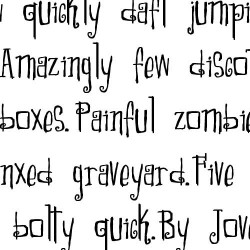 quickly daft jumpi
Amazingly few disco
boxes. Painful zombie
nxed graveyard. Five
bolty quick. By Jov